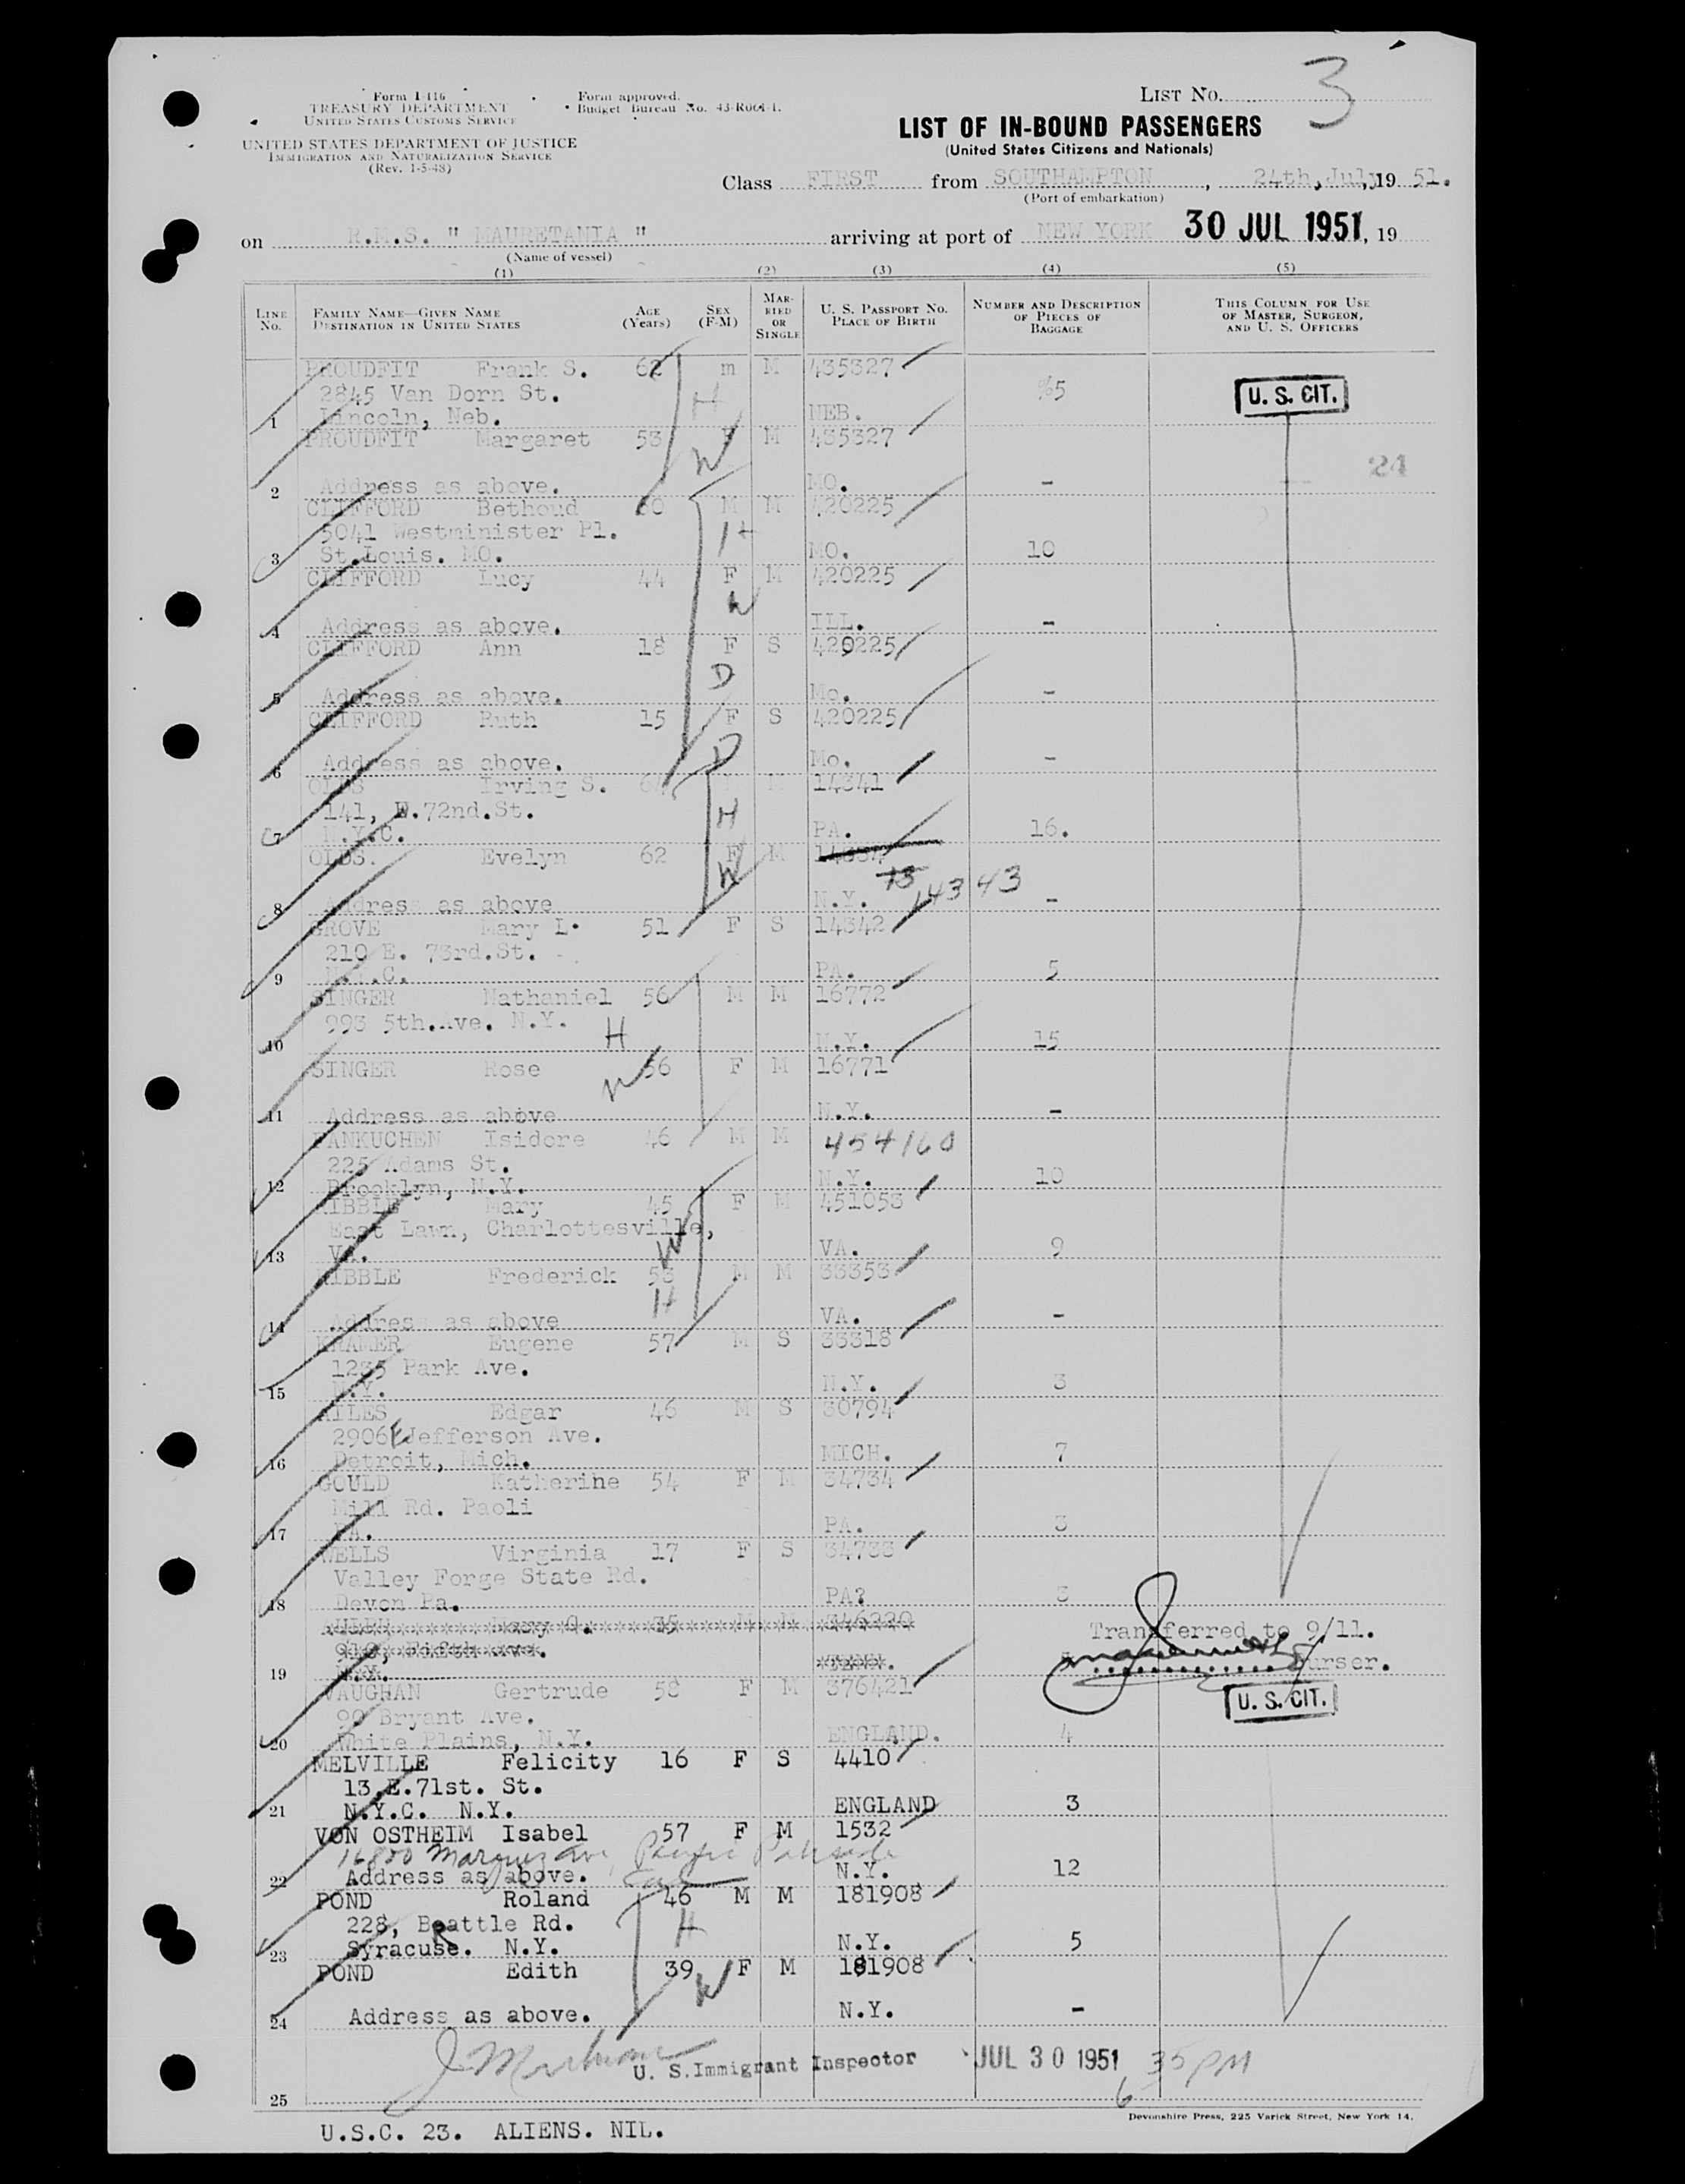 Form I-416
TREASURY DEPARTMENT
UNITED STATES CUSTOMS SERVICE
UNITED STATES DEPARTMENT OF JUSTICE
IMMIGRATION AND NATURALIZATION SERVICE
(Rev. 1-5-48)
Form approved.
Budget Bureau No. 43-R064-1.
LIST No. 3
LIST OF IN-BOUND PASSENGERS
(United States Citizens and Nationals)
Class FIRST from SOUTHAMPTON, 24th, July, 19 51.
(Port of embarkation)
on R.M.S. " MAURETANIA " arriving at port of NEW YORK 30 JUL 1951, 19
(Name of vessel)
(1) (2) (3) (4) (5)
LINE No. FAMILY NAME—GIVEN NAME DESTINATION IN UNITED STATES AGE (Years) SEX (F-M) MARRIED OR SINGLE U. S. PASSPORT No. PLACE OF BIRTH NUMBER AND DESCRIPTION OF PIECES OF BAGGAGE THIS COLUMN FOR USE OF MASTER, SURGEON, AND U. S. OFFICERS
PROUDFIT Frank S. 62 m M 435327
2845 Van Dorn St. 5 U. S. CIT.
1 Lincoln, Neb. H NEB.
PROUDFIT Margaret 53 F M 435327
W 24
2 Address as above. MO. -
CLIFFORD Bethoud 60 M M 420225
5041 Westminister Pl. H
3 St.Louis. MO. MO. 10
CLIFFORD Lucy 44 F M 420225
W
4 Address as above. ILL. -
CLIFFORD Ann 18 F S 420225
D
5 Address as above. Mo. -
CLIFFORD Ruth 15 F S 420225
D
6 Address as above. Mo. -
OLDS Irving S. 64 M M 14341
141, E.72nd.St. H
7 N.Y.C. PA. 16.
OLDS. Evelyn 62 F M
W 13 14343
8 Address as above N.Y. -
GROVE Mary L. 51 F S 14342
210 E. 73rd.St.
9 N.Y.C. PA. 5
SINGER Nathaniel 56 M M 16772
993 5th.Ave. N.Y. H
10 N.Y. 15
SINGER Rose 56 F M 16771
W
11 Address as above N.Y. -
FANKUCHEN Isidore 46 M M 454160
225 Adams St.
12 Brooklyn, N.Y. N.Y. 10
RIBBLE Mary 45 F M 451053
East Lawn, Charlottesville,
13 VA. W VA. 9
RIBBLE Frederick 53 M M 33353
H
14 Address as above VA. -
KRAMER Eugene 57 M S 33318
1235 Park Ave.
15 N.Y. N.Y. 3
AILES Edgar 46 M S 30794
2906 E Jefferson Ave.
16 Detroit, Mich. MICH. 7
GOULD Katherine 54 F M 34734
Mill Rd. Paoli
17 PA. PA. 3
WELLS Virginia 17 F S 34733
Valley Forge State Rd.
18 Devon Pa. PA? 3
Mary 35 346220 Transferred to 9/11.
910, Fifth Ave.
19 N.Y. TENN. Purser.
VAUGHAN Gertrude 58 F M 376421
90 Bryant Ave. U. S. CIT.
20 White Plains, N.Y. ENGLAND. 4
MELVILLE Felicity 16 F S 4410
13,E.71st. St.
21 N.Y.C. N.Y. ENGLAND 3
VON OSTHEIM Isabel 57 F M 1532
Marquez Ave Pacific Palisade
22 Address as above. Cal N.Y. 12
POND Roland 46 M M 181908
228, Beattle Rd. H
23 Syracuse. N.Y. N.Y. 5
POND Edith 39 F M 181908
W
24 Address as above. N.Y. -
U. S. Immigrant Inspector JUL 30 1951 6 35 PM
25
Devonshire Press, 225 Varick Street, New York 14.
U.S.C. 23. ALIENS. NIL.